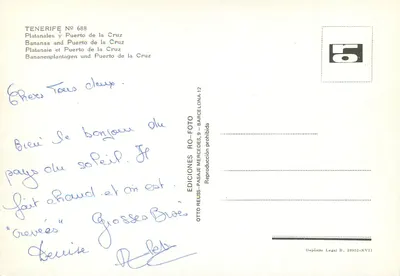 TENERIFE Nº 688
Platanales y Puerto de la Cruz
Bananas and Puerto de la Cruz
Platanaie et Puerto de la Cruz
Bananenplantagen und Puerto de la Cruz
Chers Tous deux.
Bien le bonjour du
pays du soleil. Il
fait chaud et on est
"crevés" Grosses Bises
Denise
EDICIONES RO-FOTO
OTTO REUSS-PASAJE MERCEDES, 9-BARCELONA-12
Reproducción prohibida
Depósito Legal B.